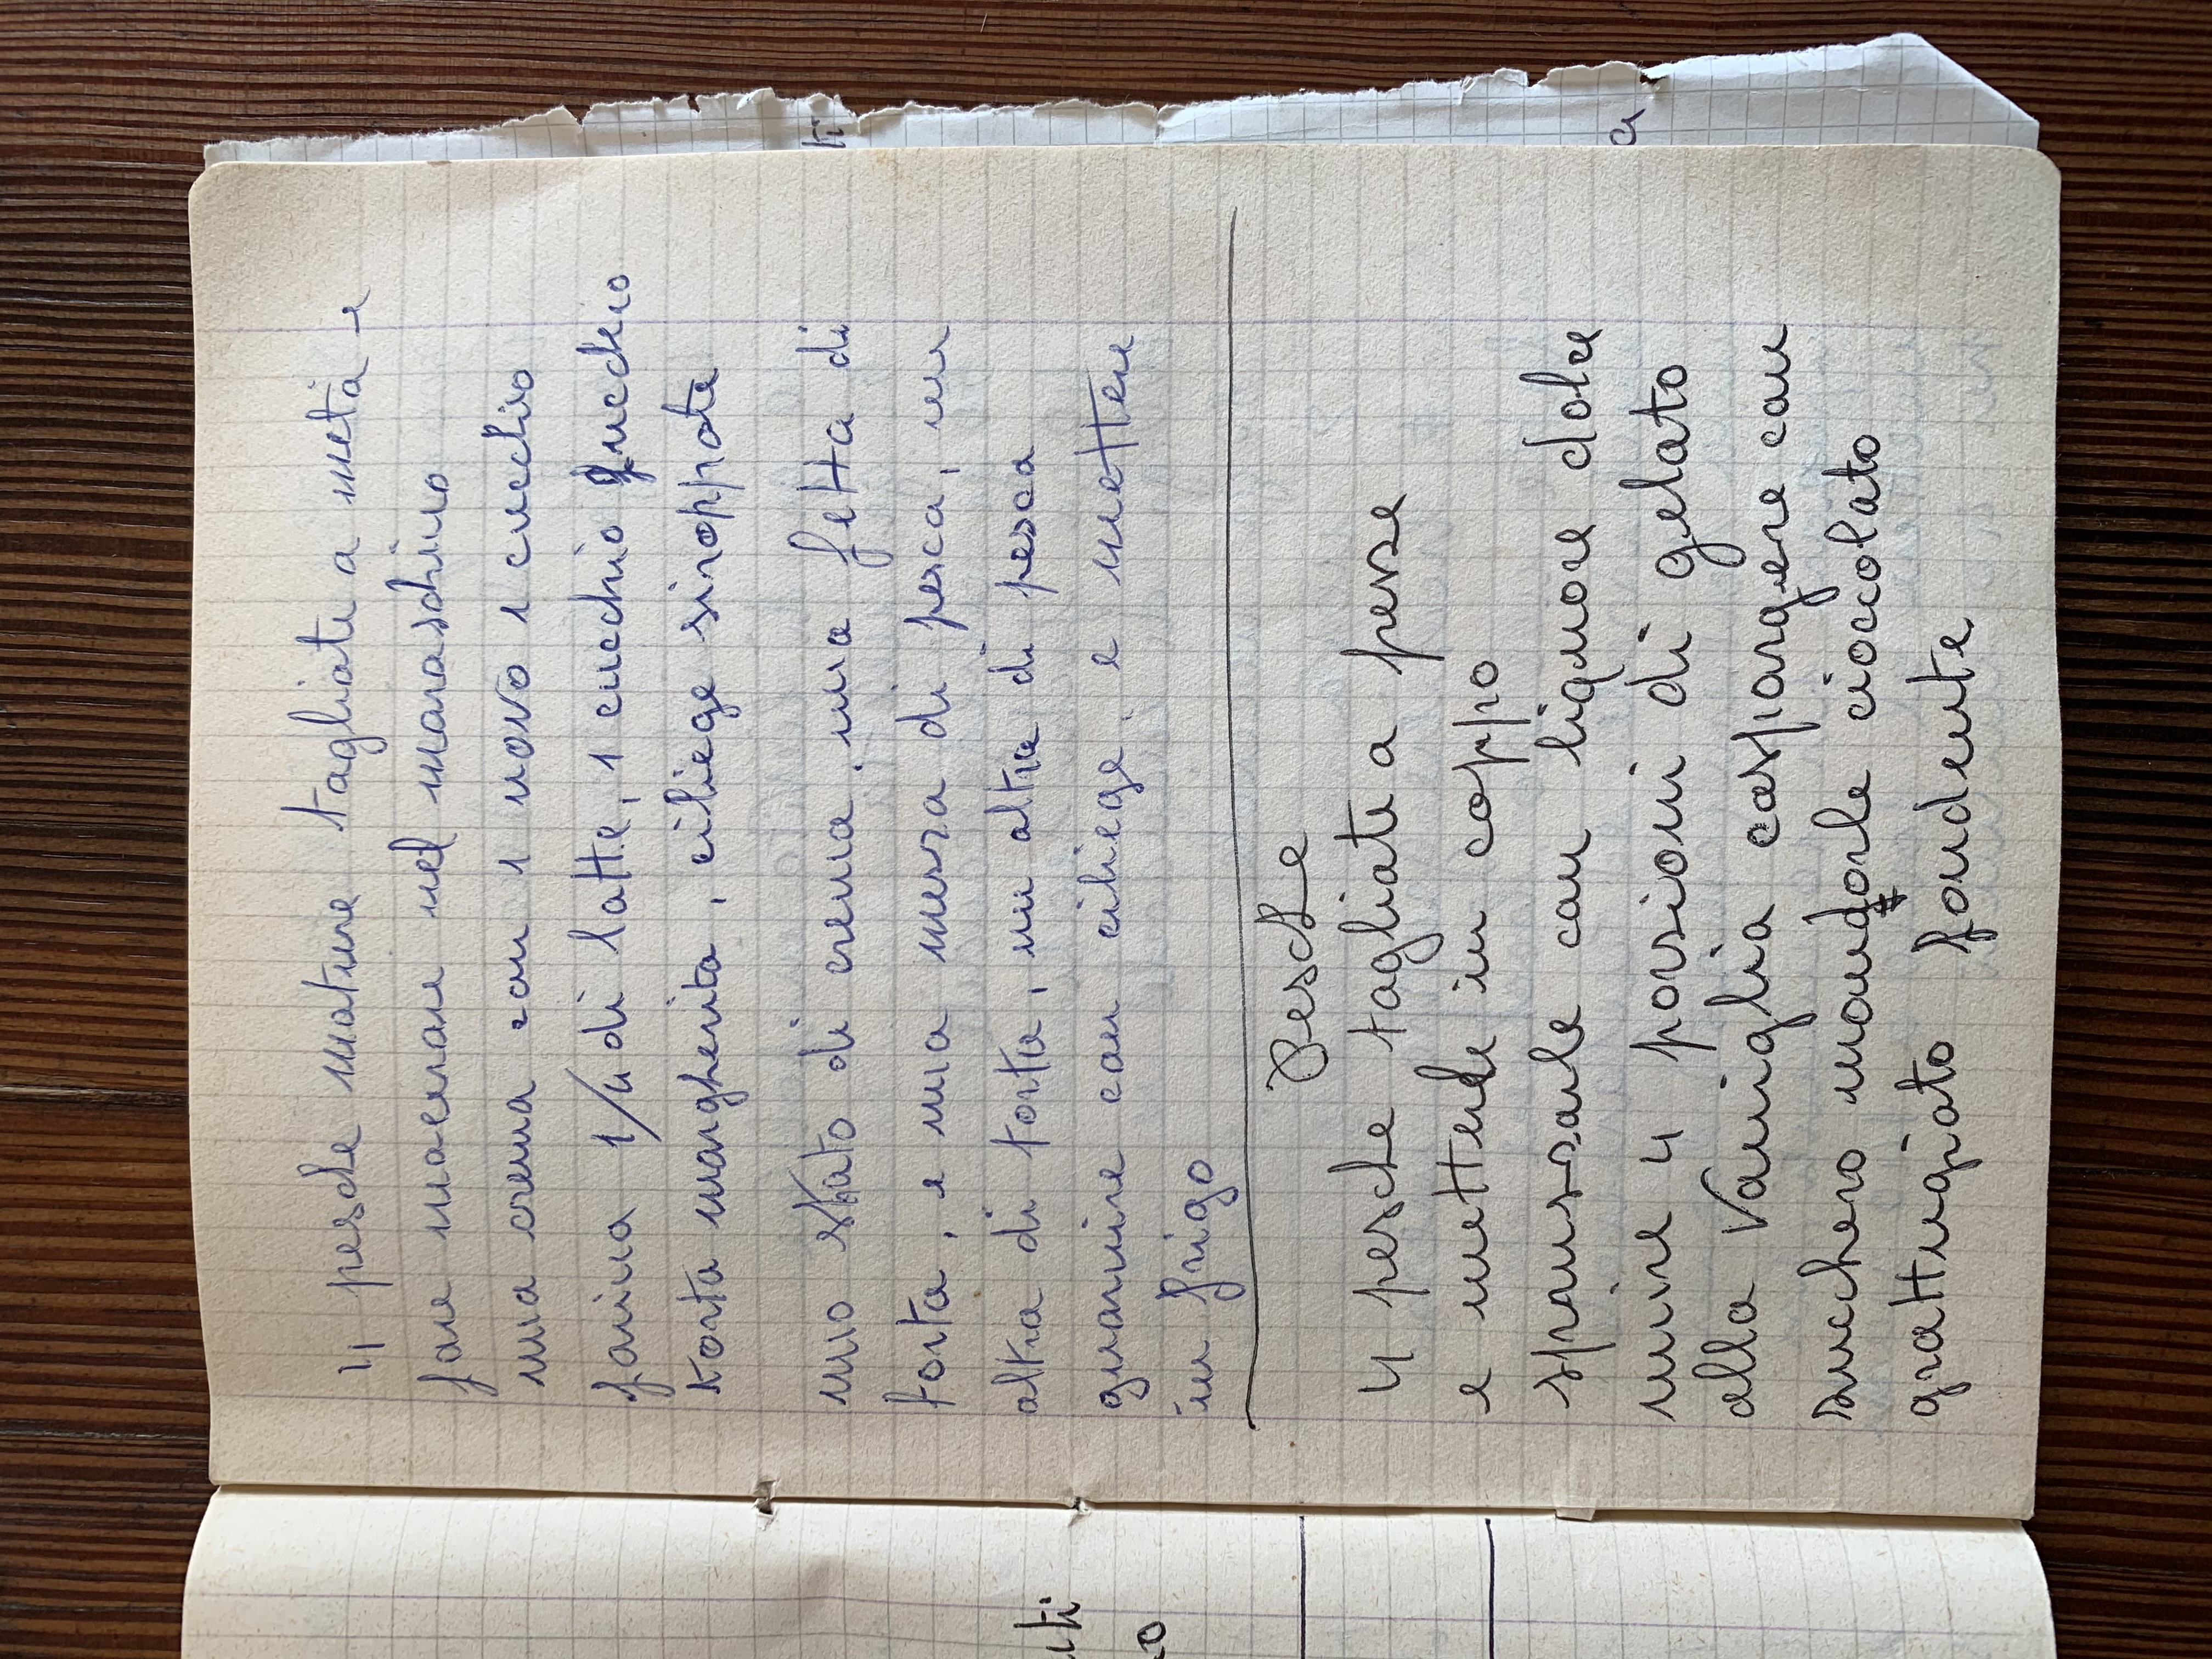 4 pesche mature tagliate a metà e
fare macerare nel maraschino
una crema con 1 uovo 1 cucchio
farina 1/4 di latte, 1 cucchio zucchero
torta margherita, ciliege siroppate
uno stato di crema, una fetta di
torta, e una mezza di pesca, un
altra di torta, un altra di pesca
guarnire con ciliege, e mettere
in frigo
Pesche
4 pesche tagliate a pezze
e metterle in coppo
spruzzarle con liquore dolce
unire 4 porzioni di gelato
alla Vaniglia cospargere con
zucchero mandorle cioccolato
grattugiato fondente